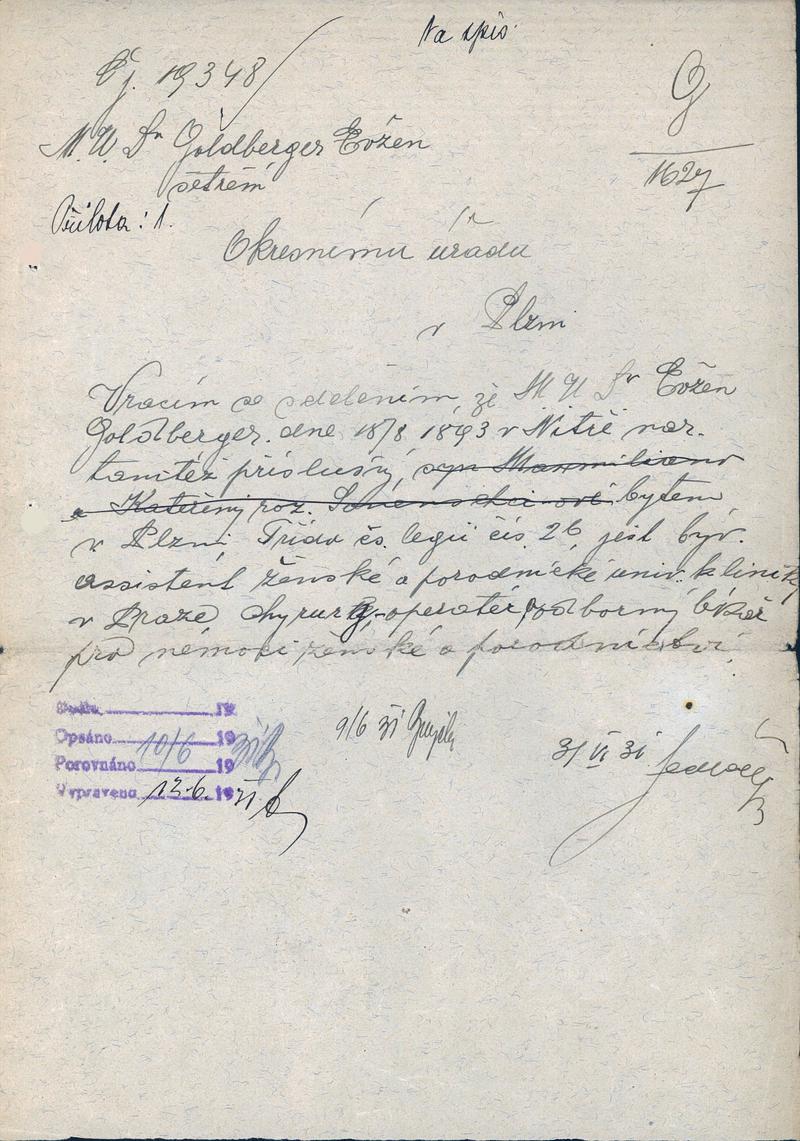 Na spis
Čj. 19348
G
1627
M. U. Dr Goldberger Evžen
šetření
Příloha: 1.
Okresnímu úřadu
v Plzni
Vracím se sdělením, že M U Dr Evžen
Goldberger. dne 18/8 1893 v Nitře nar.
tamtéž příslušný, syn Maxmiliana
a Kateřiny roz. bytem
v Plzni, Třída čs. legií čís. 26, jest býv.
assistent ženské a porodnické univ. kliniky
v Praze chyrurg-operatér, odborný lékař
pro nemoci ženské a porodnictví.
19
Opsáno 10/6 19
Porovnáno 19
Vypraveno 12.6. 1931
9/6 31
3/ VI 31